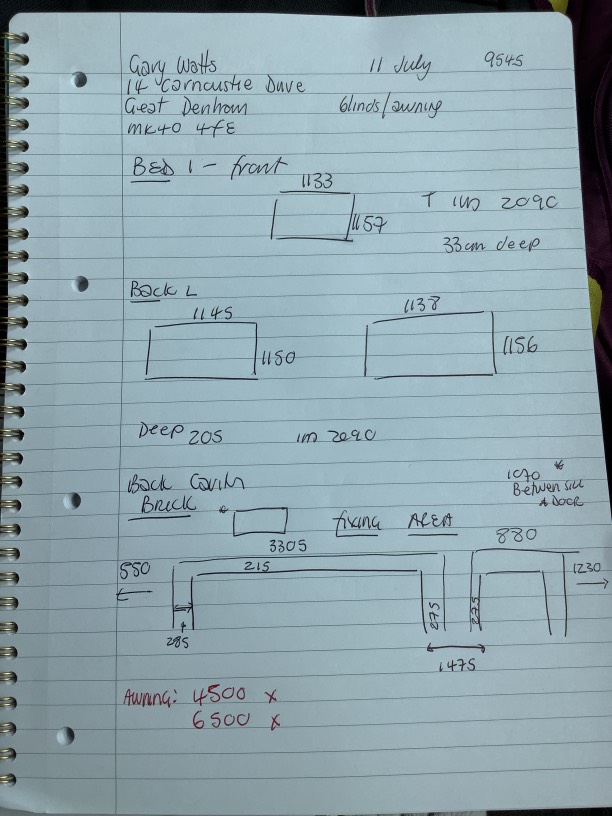 Gary Watts 11 July 9545
14 Carnoustie Drive
Great Denham blinds/awning
MK40 4FE
BED 1 - front
1133
1157
T 1m 2090
33cm deep
Back L
1145 1138
1150 1156
Deep 205 1m 2090
Back
BRICK *
fixing AREA
1070 *
Between sill
& DOOR
3305 880
550 215 1230
285 275 275
1475
Awning: 4500 x
6500 x